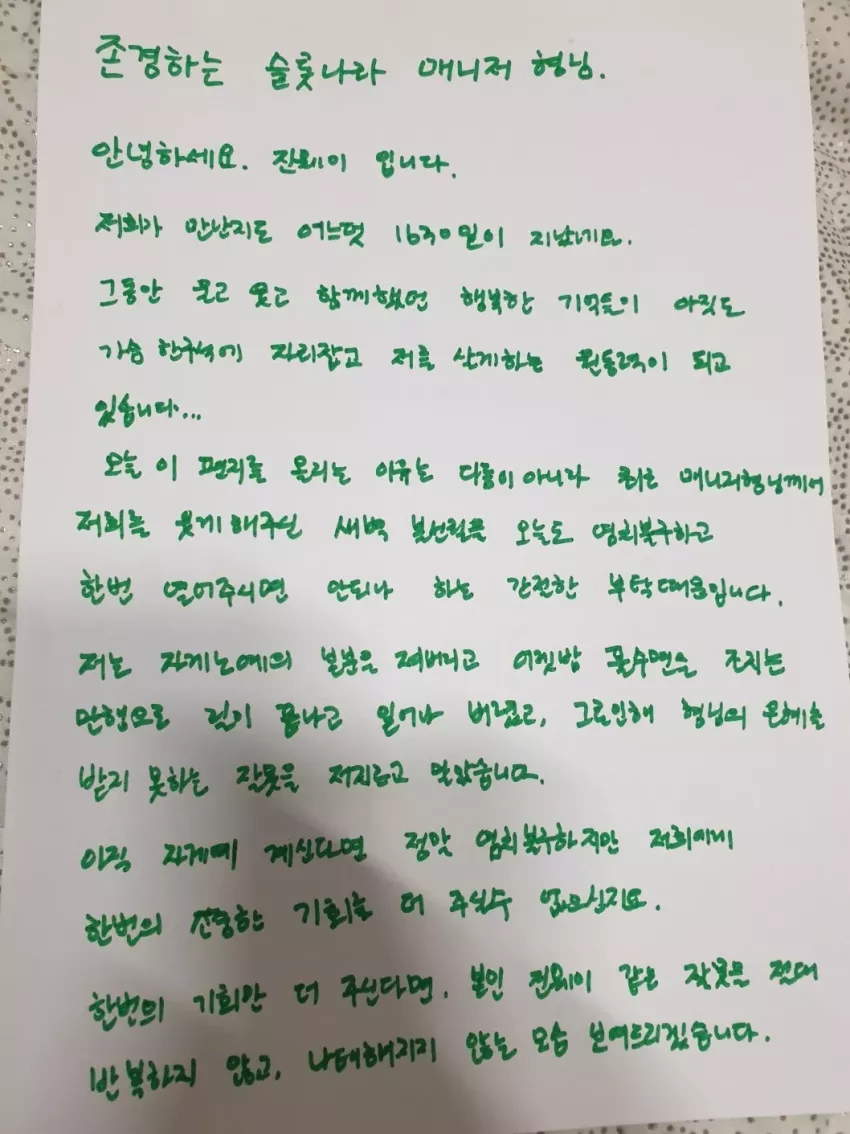 존경하는 슬롯나라 매니저 형님.
안녕하세요. 진페이 입니다.
저희가 만난지도 어느덧 1630일이 지났네요.
그동안 울고 웃고 함께했던 행복한 기억들이 아직도
가슴 한구석에 자리잡고 저를 살게하는 원동력이 되고
있습니다...
오늘 이 편지를 올리는 이유는 다름이아니라 매니저형님께서
저희를 웃게해주신 새벽 오늘도 염치불구하고
한번 열어주시면 안되나 하는 간절한 부탁때문입니다.
저는 자게노예의 본분을 져버리고 어젯밤 꿀수면을 조지는
만행으로 일어나 버렸고, 그로인해 형님의 은혜를
받지 못하는 잘못을 저지르고 말았습니다.
아직 자게에 계신다면 정말 염치불구하지만 저희에게
한번의 기회를 더 주실수 없으신지요.
한번의 기회만 더 주신다면, 본인 진페이 같은 잘못을 절대
반복하지 않고, 나태해지지 않는 모습 보여드리겠습니다.